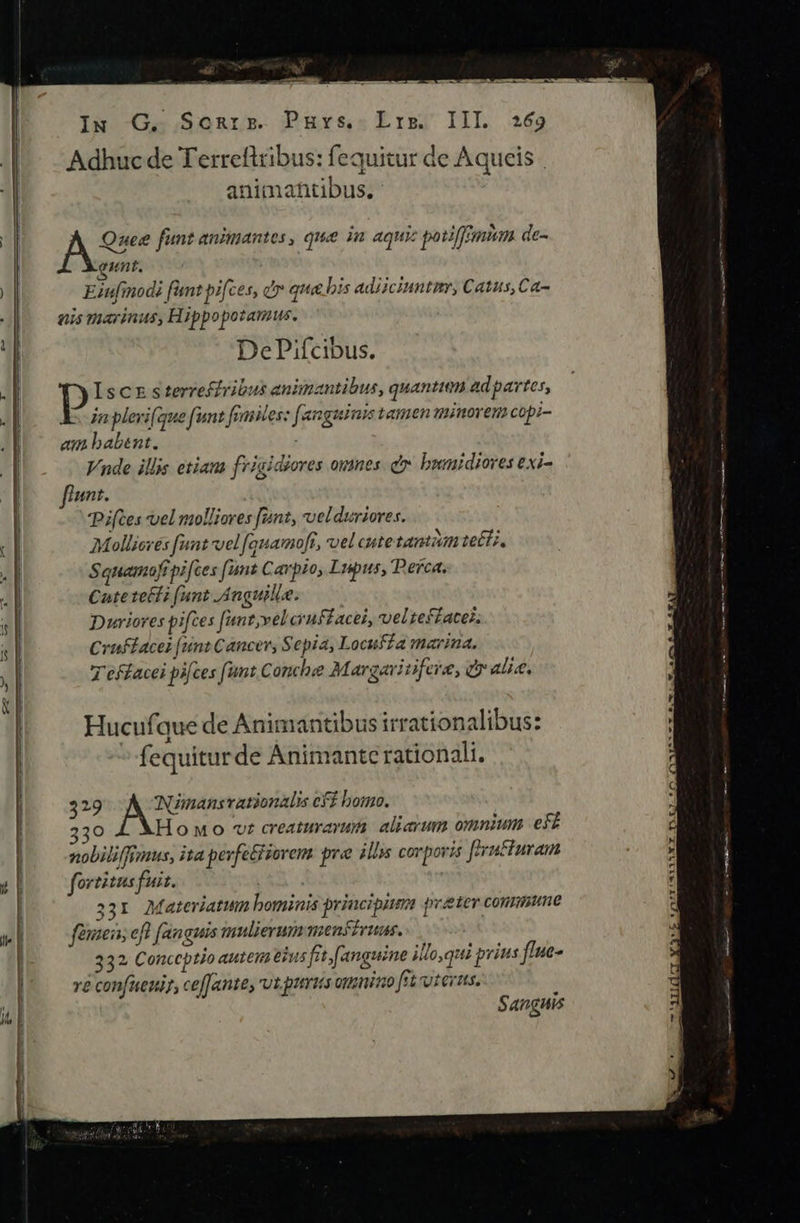 In G. Scrib. Phys. Lib. III. 269
Adhuc de Terreſtribus: ſequitur de Aqueis
animantibus.
A Queæ ſunt animantes, quæ in aquis potiſſimùm de-
gunt.
Eiuſmodi ſunt piſces, & quæ bis adijciuntur, Catus, Ca-
nis marinus, Hippopotamus.
De Piſcibus.
PIsces terreſtribus animantibus, quantum ad partes,
in pleriſque ſunt ſimiles: ſanguinis tamen minorem copi-
am habent.
Vnde illis etiam frigidiores omnes & humidiores exi-
ſtunt.
Piſces vel molliores ſunt, vel duriores.
Molliores ſunt vel ſquamoſi, vel cute tantùm tecti.
Squamoſi piſces ſunt Carpio, Lupus, Perca.
Cute tecti ſunt Anguillæ.
Duriores piſces ſunt, vel cruſtacei, vel teſtacei.
Cruſtacei ſunt Cancer, Sepia, Locuſta marina.
Teſtacei piſces ſunt Conchæ Margaritiferæ, & aliæ.
Hucuſque de Animantibus irrationalibus:
ſequitur de Animante rationali.
329 ANimans rationalis eſt homo.
330 Homo vt creaturarum aliarum omnium eſt
nobiliſſimus, ita perfectiorem præ illis corporis ſtructuram
ſortitus fuit.
331 Materiatum hominis principium præter commune
ſemen, eſt ſanguis mulierum menſtruus.
332 Conceptio autem eius fit, ſanguine illo, qui prius flue-
re conſueuit, ceſſante, vt purus omnino ſit vterus.
Sanguis